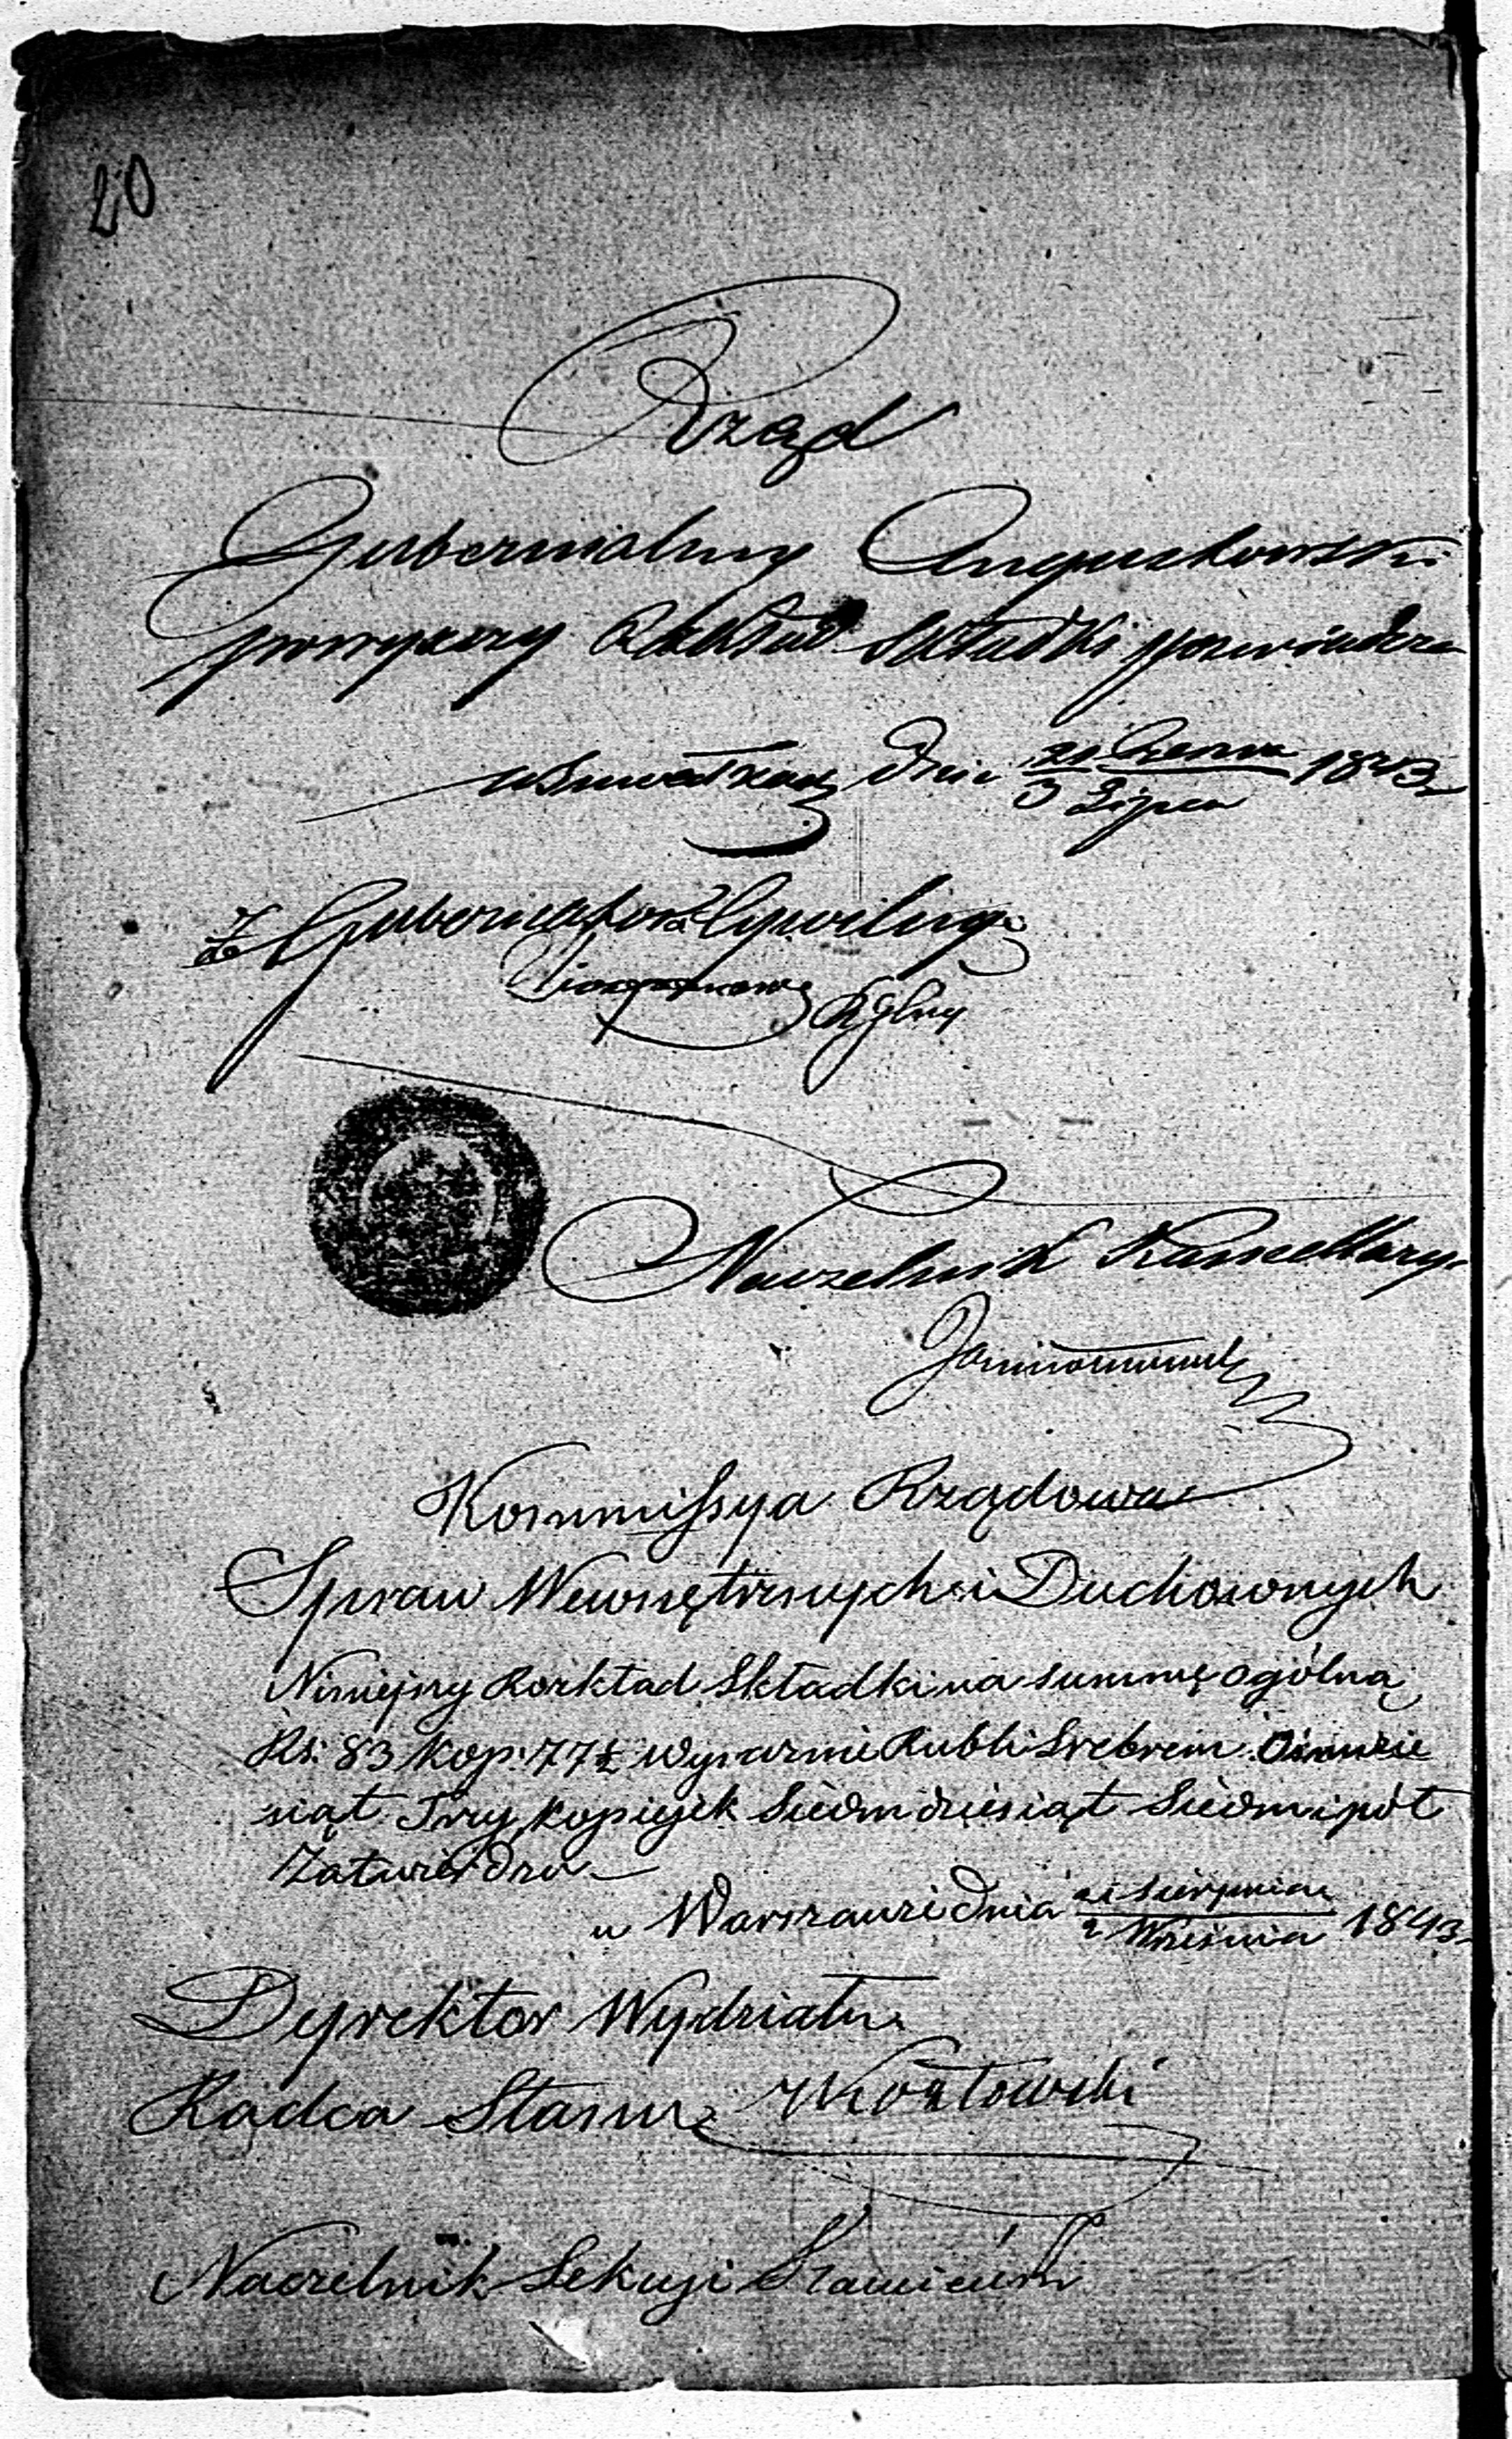 20
Rząd
Gubernialny Augustowski
powyższy Rozkład Składki poświadcza
w Suwałkach dnia 21 Czerwca / 3 Lipca 1843
Za Gubernatora Cywilnego
Naczelnik Kancellaryi
Kommissya Rządowa
Spraw Wewnętrznych i Duchownych
Niniejszy Rozkład Składki na summę ogólną
Rs: 83 kop: 77½ wyraźnie Rubli Srebrem Ośmdzie
siąt Trzy, kopiejek Siedmdziesiąt Siedm i pół
Zatwierdza
w Warszawie dnia 21 Sierpnia / 2 Września 1843
Dyrektor Wydziału
Radca Stanu
Naczelnik Sekcyi